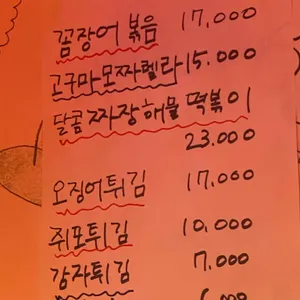 꼼장어 볶음 17,000
고구마모짜렐라 15.000
달콤짜장해물떡볶이
23.000
오징어튀김 17,000
쥐포튀김 10,000
감자튀김 7,000